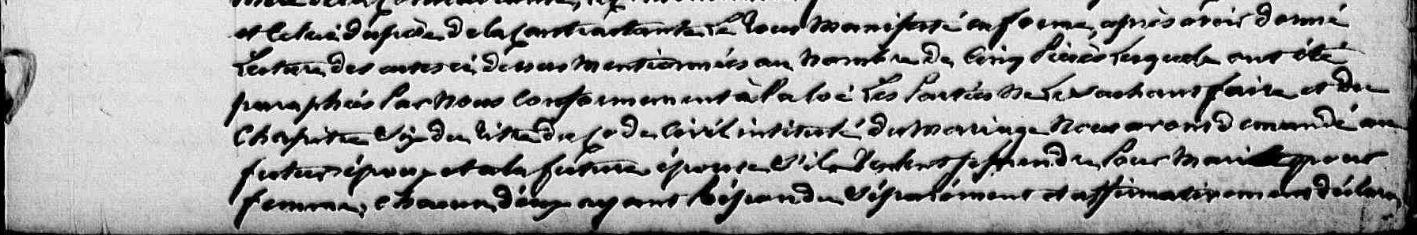 et celui du père de la contractante le tout manifesté en forme, après avoir donné
lecture des actes ci dessus mentionnées au nombre de cinq pièces lesquels ont été
paraphées par nous conformement à la loi les parties ne le sachant faire et du
Chapitre six du titre du code civil intitulé du mariage nous avons demandé au
futur époux et a la future épouse s'ils veulent se prendre pour mari et pour
femme, chacun d'eux ayant répondu séparément et affirmativement déclaron